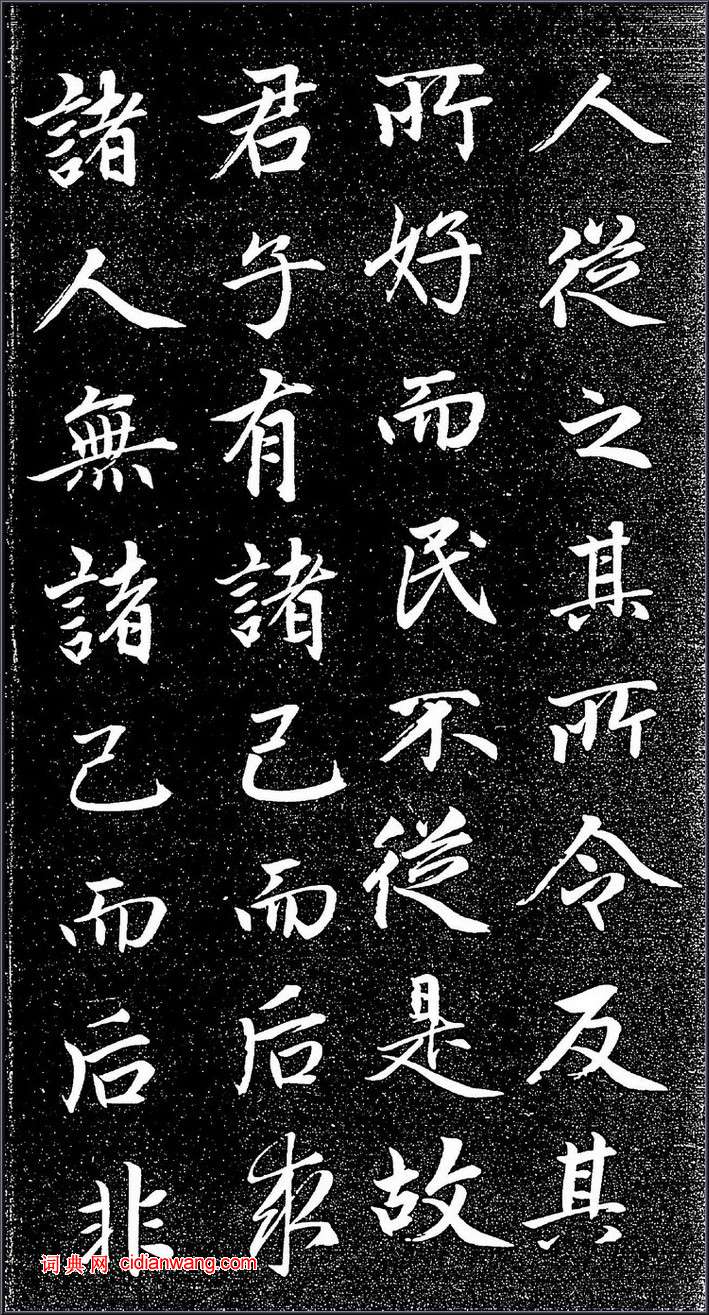 人從之其所令反其
所好而民不從是故
君子有諸己而后求
諸人無諸己而后非
词典网 cidianwang.com